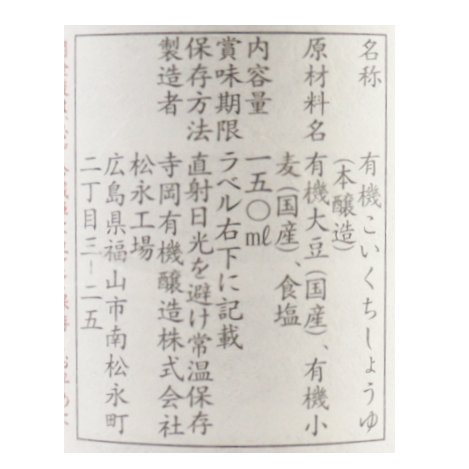 名称 有機こいくちしょうゆ
(本醸造)
原材料名 有機大豆(国産)、有機小
麦(国産)、食塩
内容量 一五〇ml
賞味期限 ラベル右下に記載
保存方法 直射日光を避け常温保存
製造者 寺岡有機醸造株式会社
松永工場
広島県福山市南松永町
二丁目三-二五